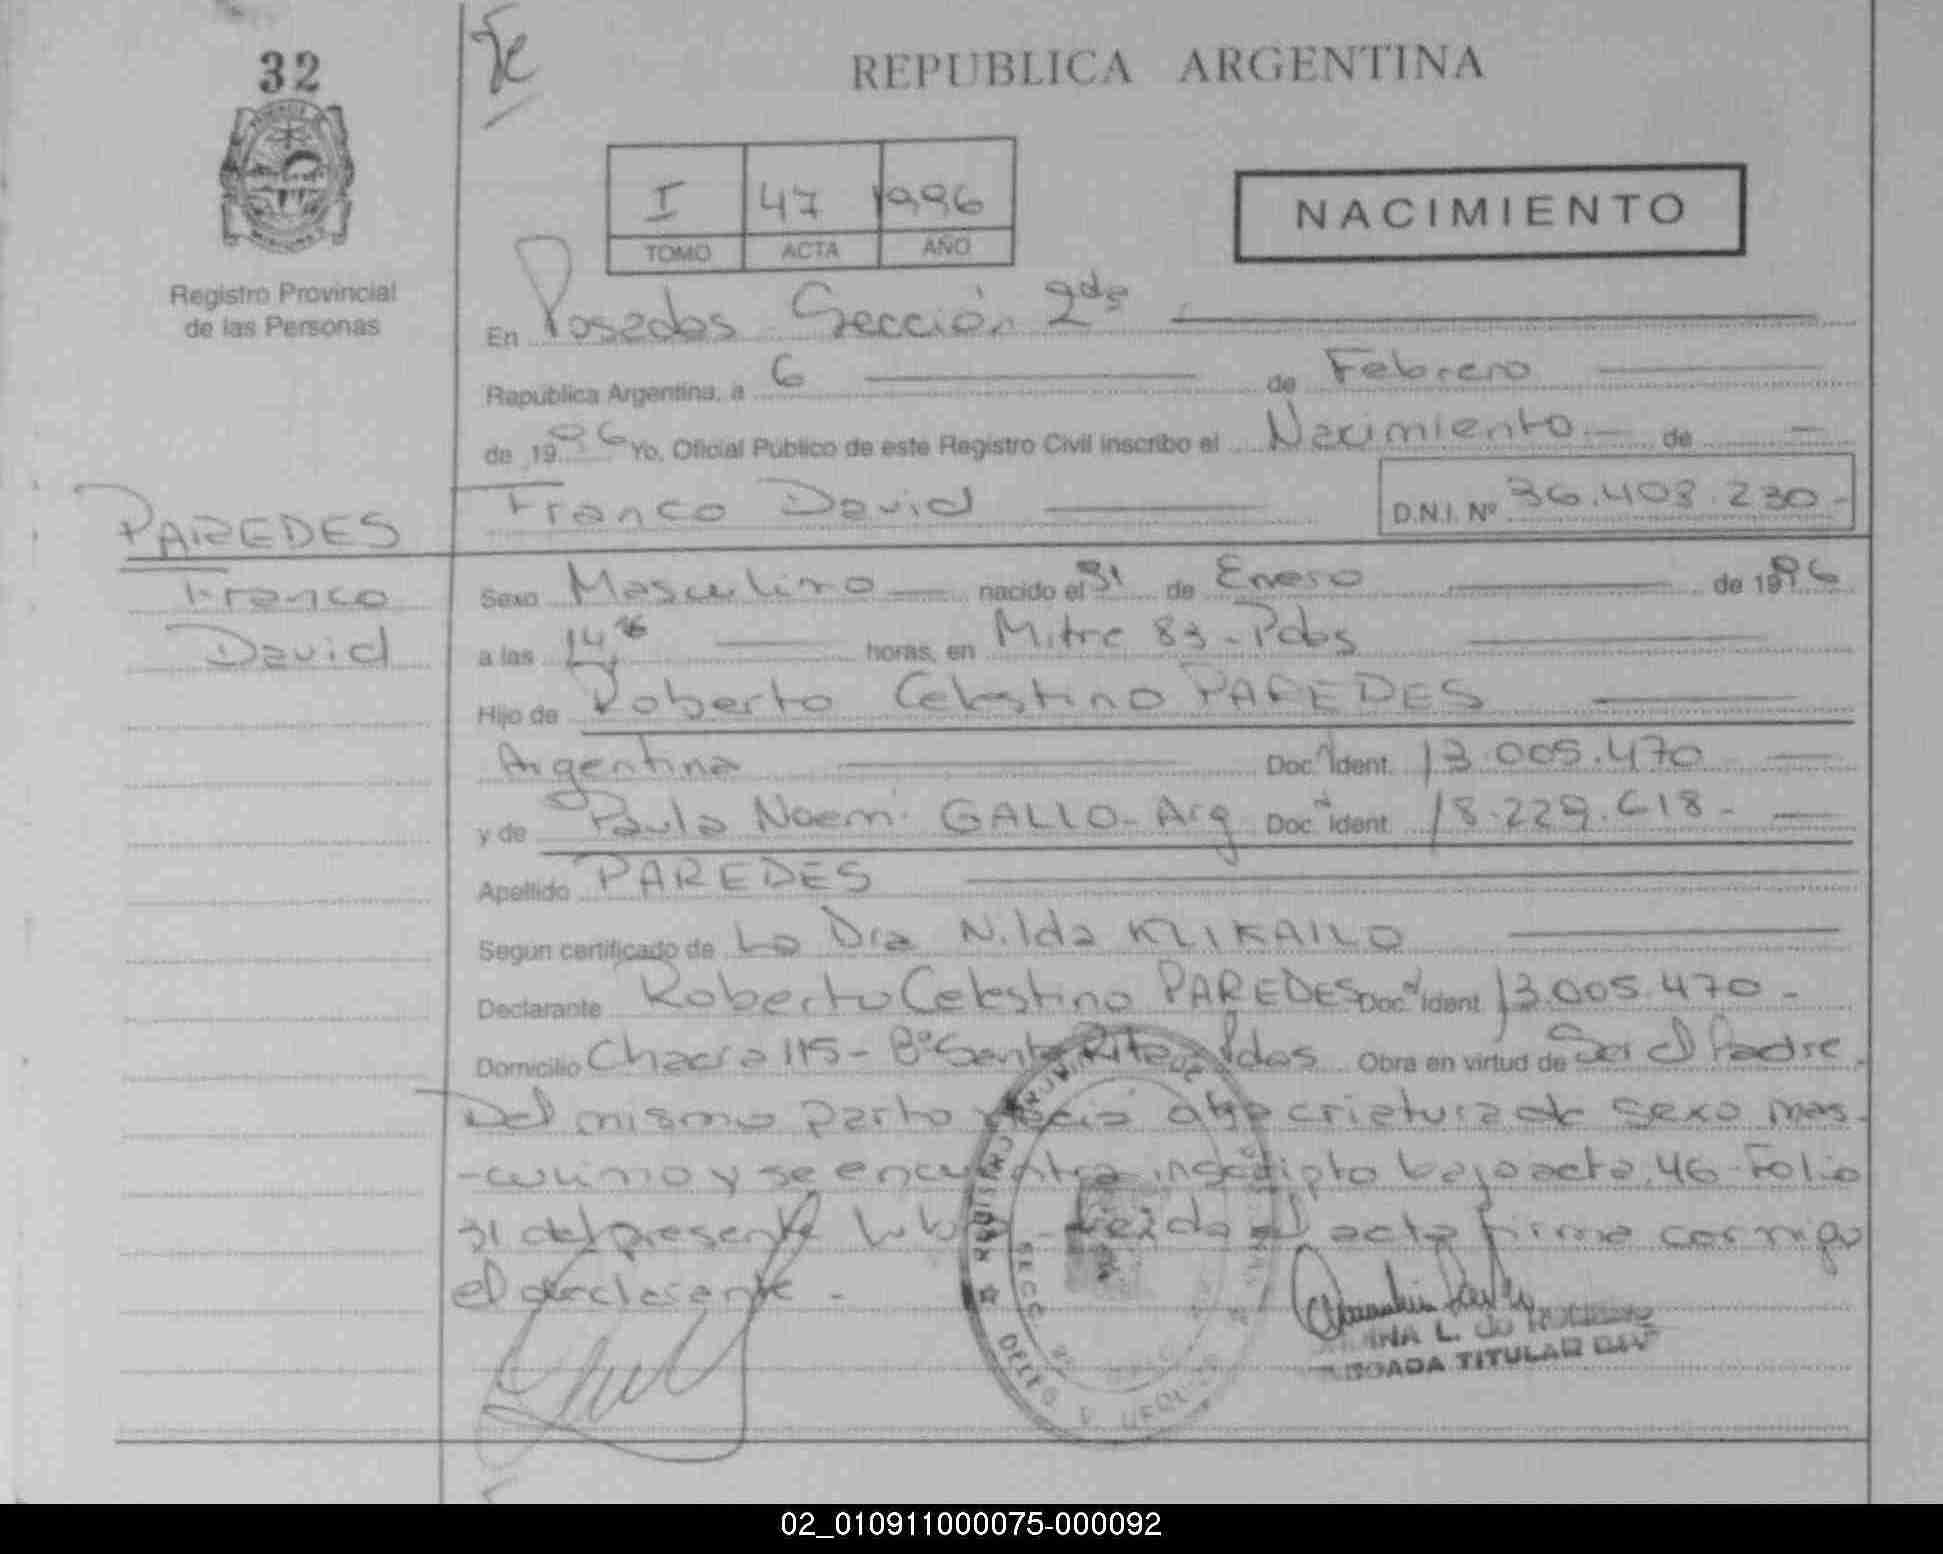 32
REPUBLICA ARGENTINA
I 47 1996
TOMO ACTA AÑO
NACIMIENTO
Registro Provincial
de las Personas
En Posadas Sección 2da
República Argentina, a 6 de Febrero
de 1996 Yo, Oficial Público de este Registro Civil inscribo el Nacimiento - de -
Franco David D.N.I. Nº 36.408.230-
PAREDES
Franco
David
Sexo Masculino nacido el 31 de Enero de 1996
a las 14, horas, en Mitre 83 - Pdas
Hijo de Roberto Celestino PAREDES
Argentina Doc. Ident. 13.005.470
y de Paula Noemi GALLO - Arg Doc. Ident. 18.229.618-
Apellido PAREDES
Según certificado de La Dra Nilda KLIKAILO
Declarante Roberto Celestino PAREDES Doc. Ident. 13.005.470 -
Domicilio Chacra 115 - Bº Santa Rita Pdas Obra en virtud de Ser el Padre.
Del mismo parto nació otra criatura de sexo mas-
-culino y se encuentra inscripto bajo acta 46 - Folio
31 del presente Libro - Leída el acta firma conmigo
el declarante -
L. de
TITULAR
02_010911000075-000092